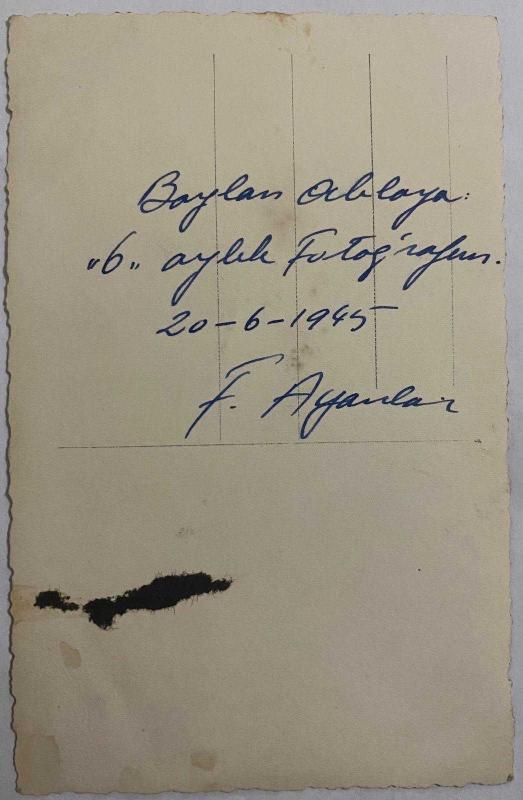 Baylan Ablaya:
"6" aylık Fotoğrafım.
20-6-1945
F. Ayanlar